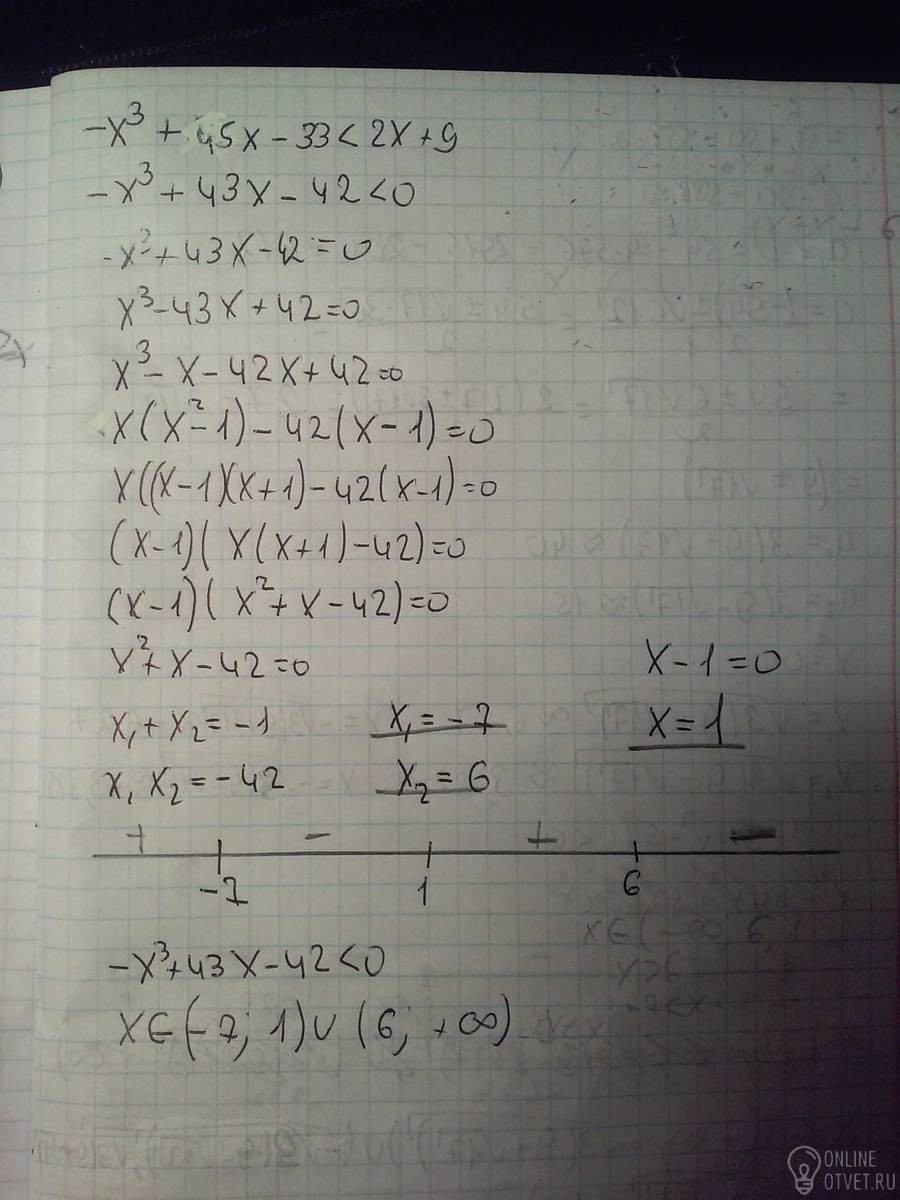 -x³ + 45x - 33 < 2x + 9
-x³ + 43x - 42 < 0
-x³ + 43x - 42 = 0
x³ - 43x + 42 = 0
x³ - x - 42x + 42 = 0
x(x² - 1) - 42(x - 1) = 0
x((x - 1)(x + 1) - 42(x - 1) = 0
(x - 1)(x(x + 1) - 42) = 0
(x - 1)(x² + x - 42) = 0
x² + x - 42 = 0 x - 1 = 0
x₁ + x₂ = -1 x₁ = -7 x = 1
x₁ x₂ = -42 x₂ = 6
+ - + -
-7 1 6
-x³ + 43x - 42 < 0
x ∈ (-7; 1) ∪ (6; +∞)
ONLINE
OTVET.RU